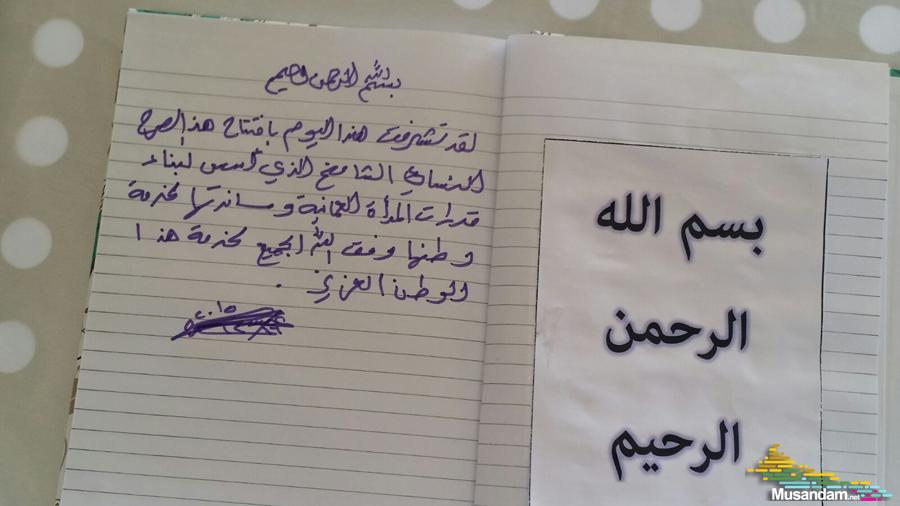 بسم الله الرحمن الرحيم
لقد تشرفت هذا اليوم بافتتاح هذا الصرح
النسائي الشامخ الذي أسس لبناء
قدرات المرأة العمانية ومساندتها لخدمة
وطنها وفق الله الجميع لخدمة هذا
الوطن العزيز.
بسم الله
الرحمن
الرحيم
Musandam.net